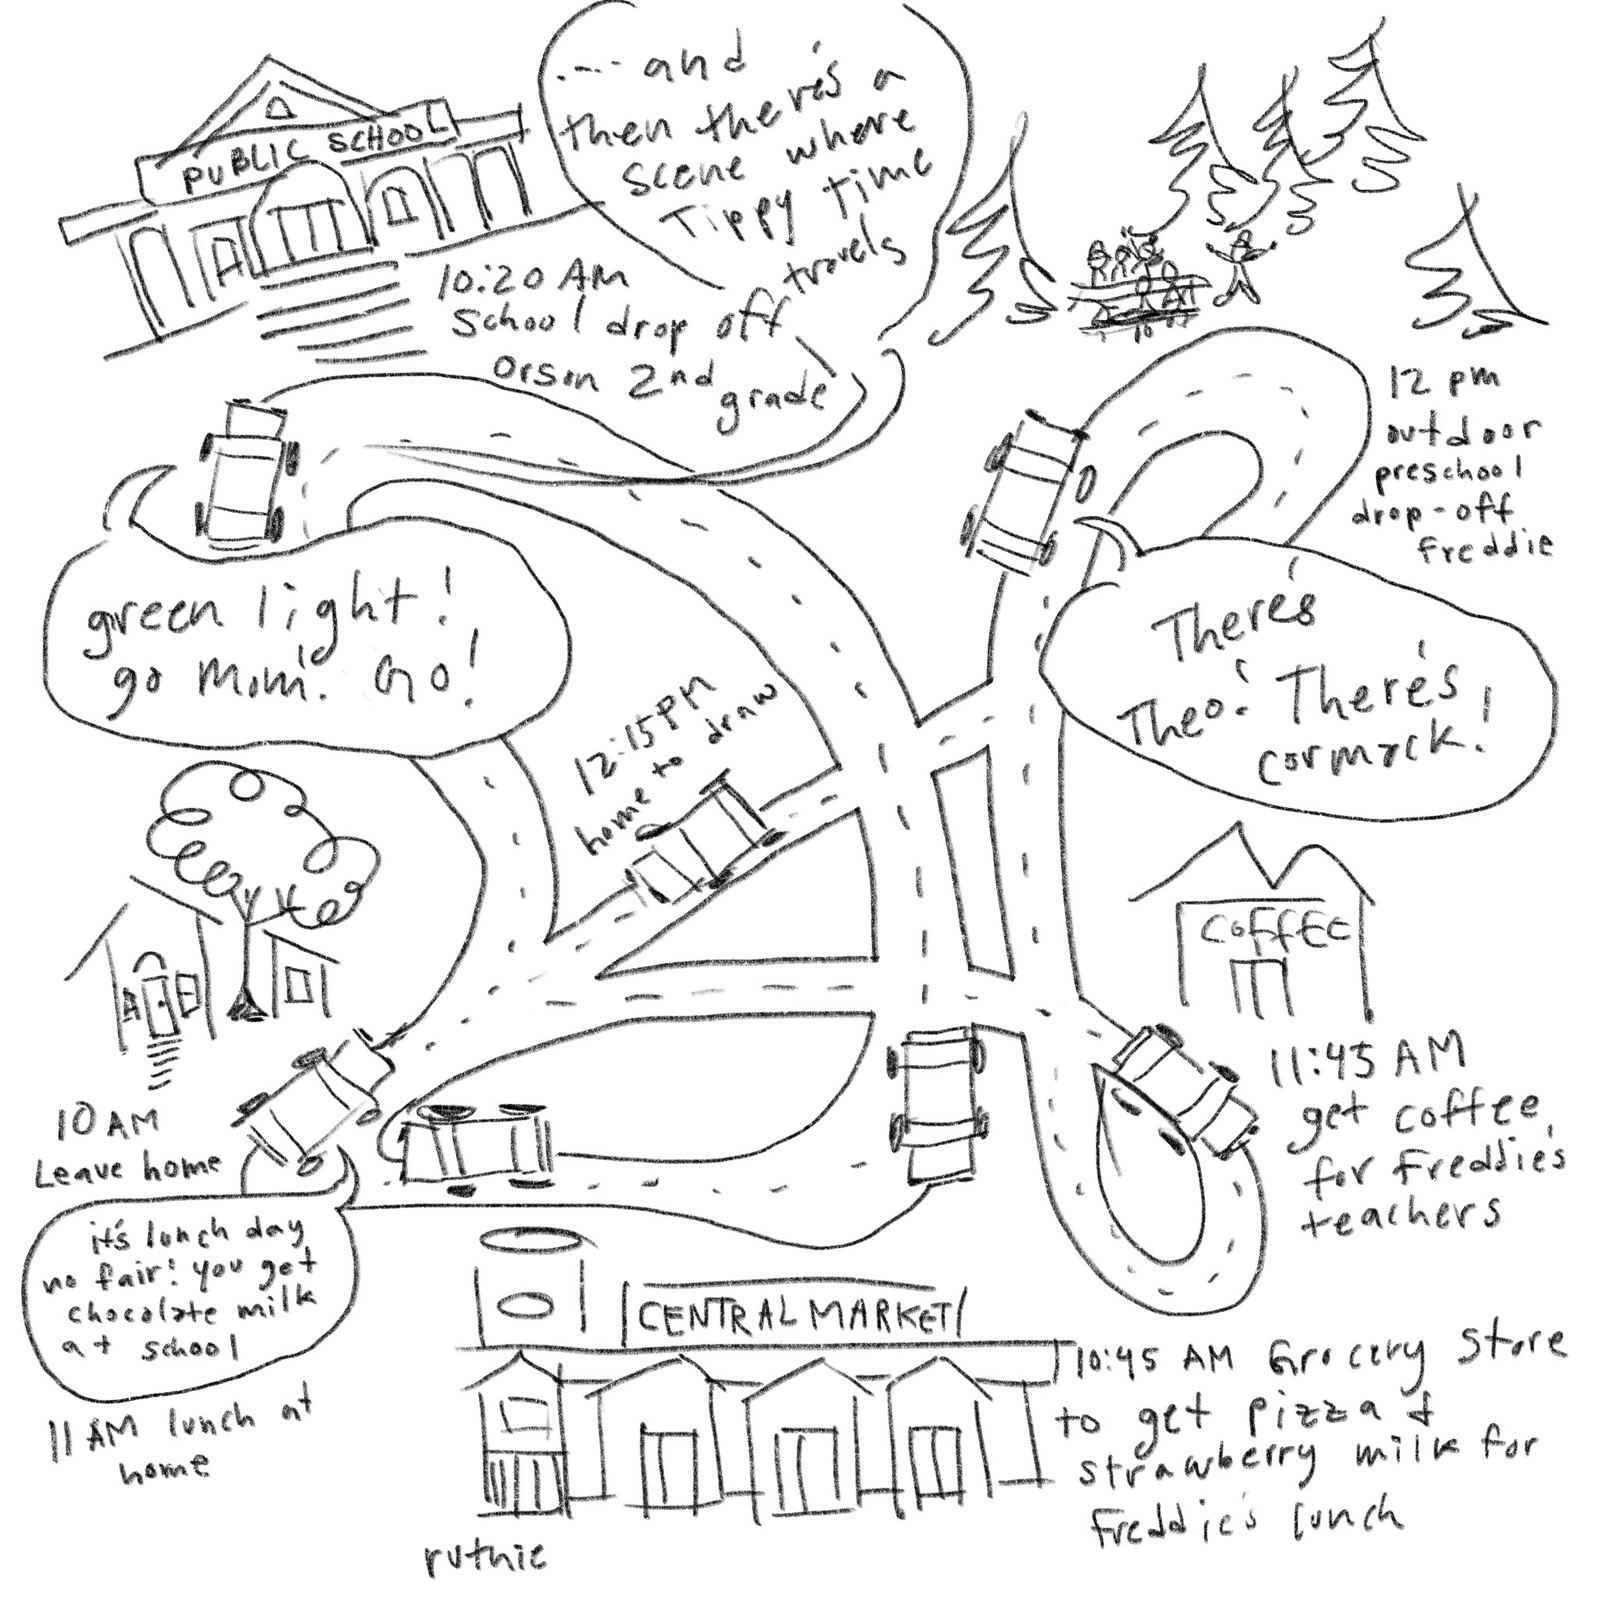 PUBLIC SCHOOL
....and
then there's a
scene where
Tippy time
travels
10:20 AM
School drop off
Orson 2nd
grade
12 pm
outdoor
preschool
drop-off
Freddie
green light!
go Mom! Go!
There's
Theo! There's
cormack!
12:15 PM
home to draw
COFFEE
10 AM
Leave home
11:45 AM
get coffee
for Freddie's
teachers
it's lunch day
no fair! you get
chocolate milk
at school
11 AM lunch at
home
CENTRAL MARKET
10:45 AM Grocery Store
to get pizza &
strawberry milk for
Freddie's lunch
ruthie